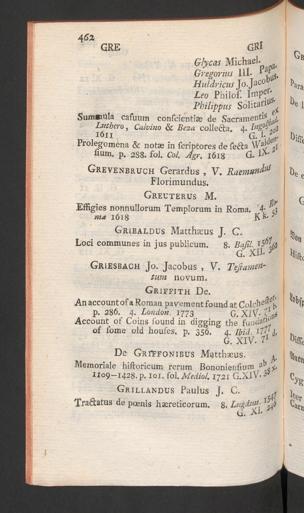 462
GRE GRI
Glycas Michael.
Gregorius III. Papa.
Huldricus Jo. Jacobus.
Leo Philos. Imper.
Philippus Solitarius.
Summula casuum conscientiæ de Sacramentis ex
Luthero, Calvino & Beza collecta. 4. Ingolstad.
1611 G. I.
Prolegomena & notæ in scriptores de secta Waldensium.
sium. p. 288. fol. Col. Agr. 1618 G. IX.
GREVENBRUCH Gerardus, V. Raemundus
Florimundus.
GREUTERUS M.
Effigies nonnullorum Templorum in Roma. 4. Roma
ma 1618 K k. 58
GRIBALDUS Matthæus J. C.
Loci communes in jus publicum. 8. Basil. 1567
G. XII. 360
GRIESBACH Jo. Jacobus, V. Testamen-
tum novum.
GRIFFITH De.
An account of a Roman pavement found at Colchester.
p. 286. 4. London. 1773 G. XIV. 71 b.
Account of Coins found in digging the fundations
of some old houses. p. 356. 4. Ibid. 1777
G. XIV. 71 d.
De GRIFFONIBUS Matthæus.
Memoriale historicum rerum Bononiensium ab A.
1109-1428. p. 101. fol. Mediol. 1721 G. XIV. 58 x.
GRILLANDUS Paulus J. C.
Tractatus de pœnis hæreticorum. 8. Lugdun. 1547
G. XI. 246